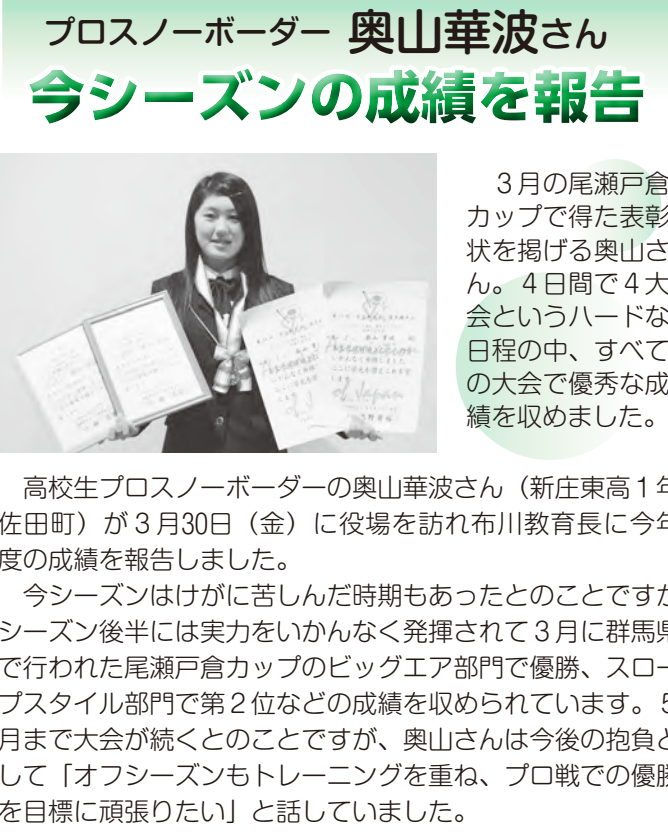 プロスノーボーダー 奥山華波さん
今シーズンの成績を報告
３月の尾瀬戸倉
カップで得た表彰
状を掲げる奥山さ
ん。４日間で４大
会というハードな
日程の中、すべて
の大会で優秀な成
績を収めました。
高校生プロスノーボーダーの奥山華波さん（新庄東高１年
佐田町）が３月30日（金）に役場を訪れ布川教育長に今年
度の成績を報告しました。
今シーズンはけがに苦しんだ時期もあったとのことですが
シーズン後半には実力をいかんなく発揮されて３月に群馬県
で行われた尾瀬戸倉カップのビッグエア部門で優勝、スロー
プスタイル部門で第２位などの成績を収められています。５
月まで大会が続くとのことですが、奥山さんは今後の抱負と
して「オフシーズンもトレーニングを重ね、プロ戦での優勝
を目標に頑張りたい」と話していました。